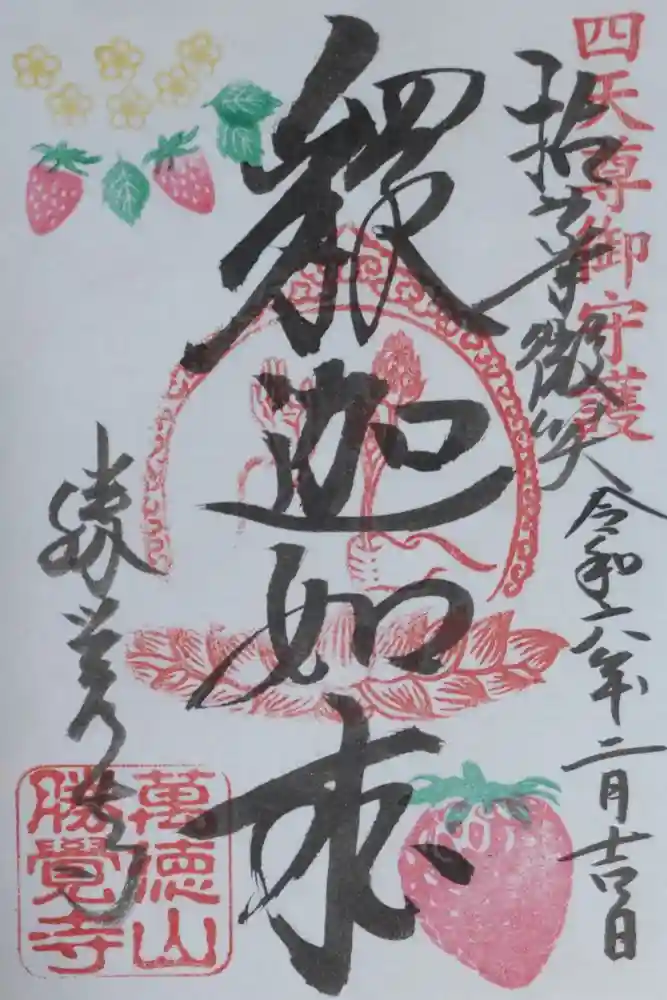 四天尊御守護
拈華微笑
令和六年二月吉日
釋迦如来
勝覚寺
萬徳山
勝覺寺